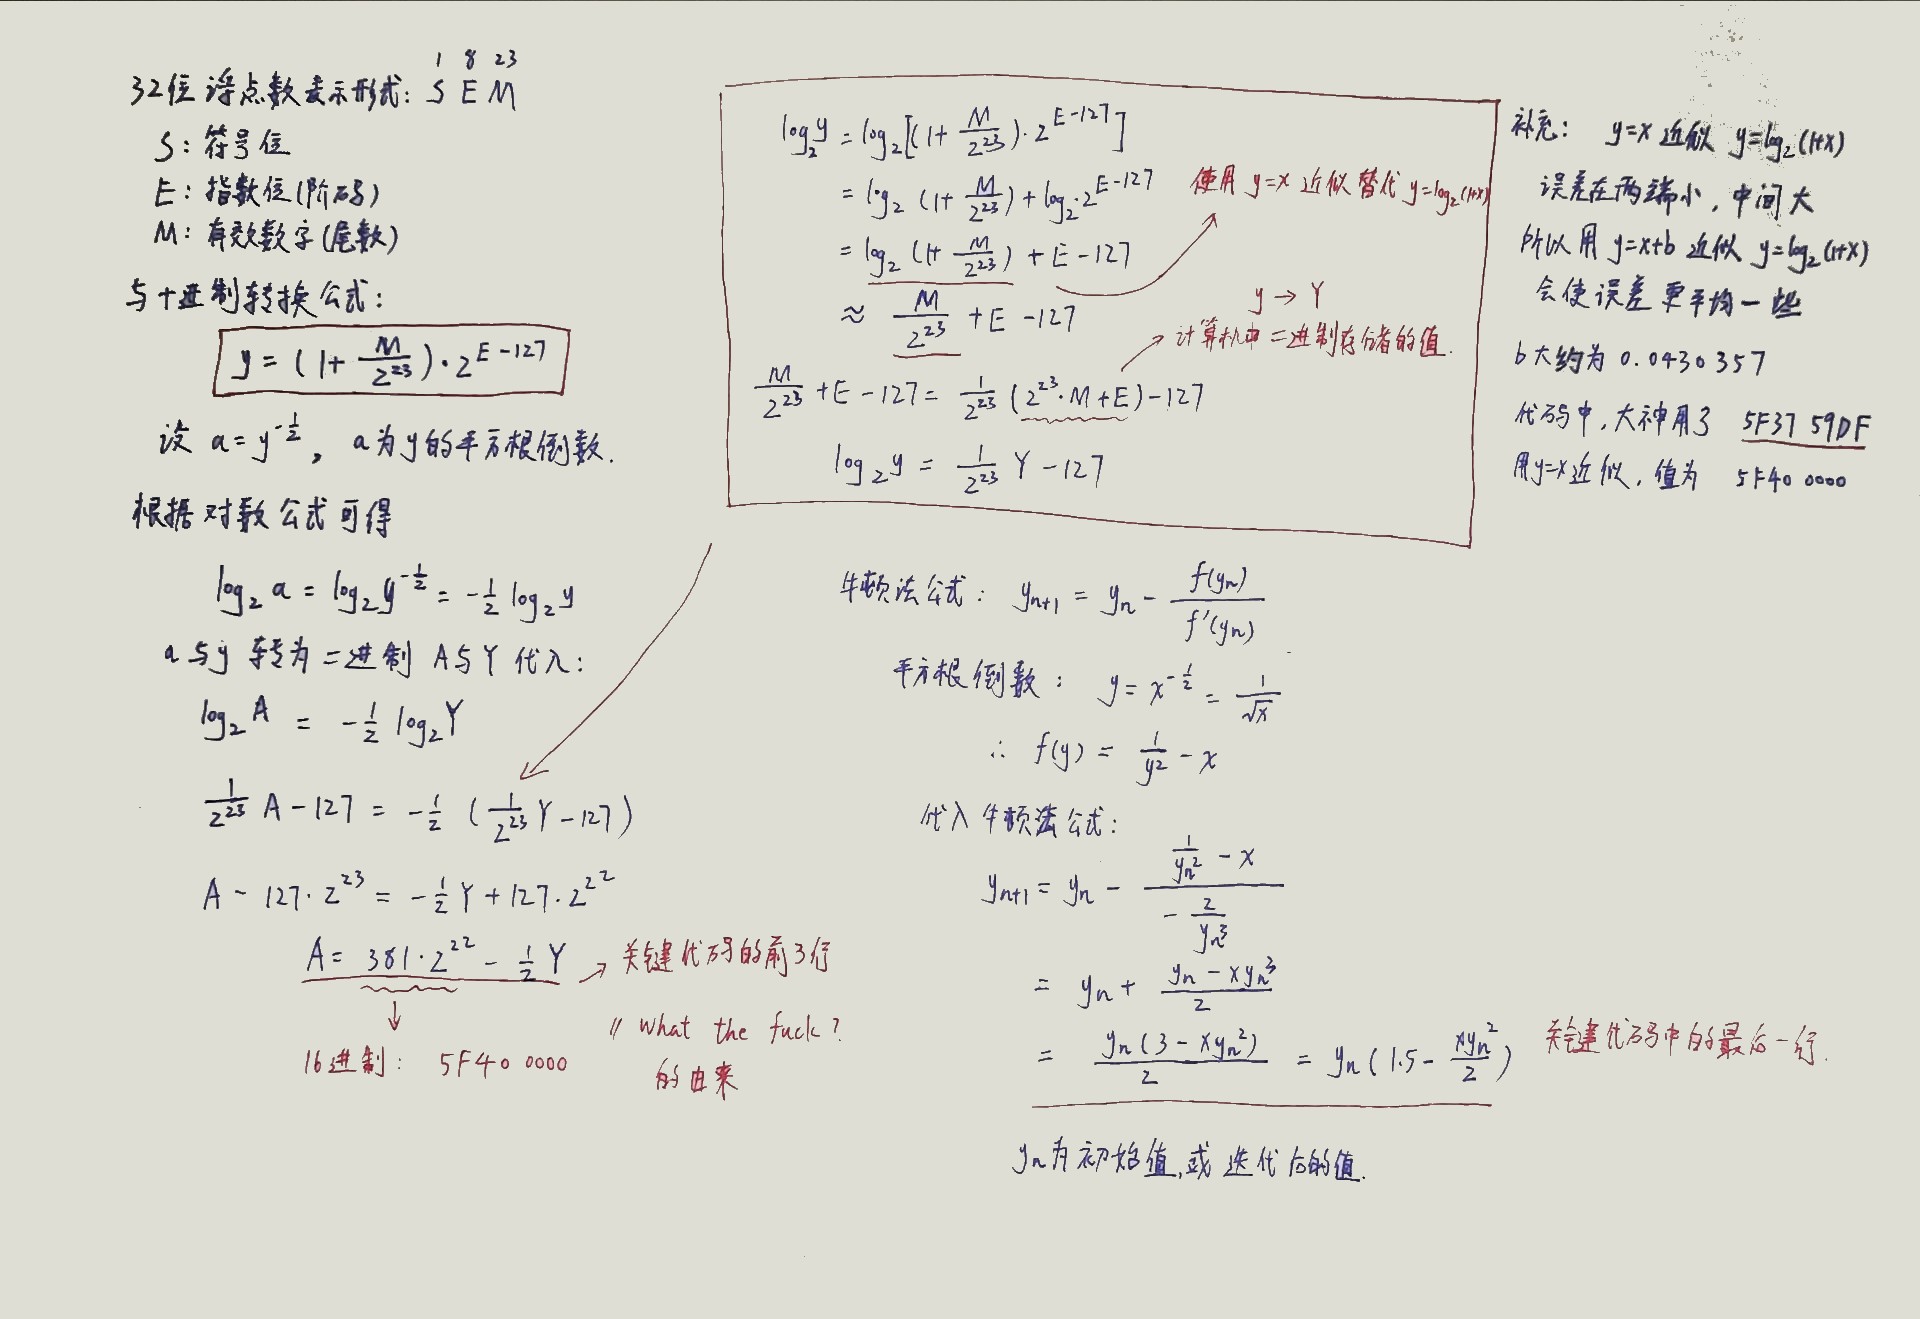 1 8 23
32位浮点数表示形式: S E M
S: 符号位
E: 指数位(阶码)
M: 有效数字(尾数)
与十进制转换公式:
y = (1+ M/2^23)·2^(E-127)
设 a=y^(-1/2), a为y的平方根倒数.
根据对数公式可得
log₂a = log₂y^(-1/2) = -1/2 log₂y
a与y 转为二进制 A与Y 代入:
log₂A = -1/2 log₂Y
1/2^23 A - 127 = -1/2 (1/2^23 Y - 127)
A - 127·2^23 = -1/2 Y + 127·2^22
A = 381·2^22 - 1/2 Y → 关键代码的前3行
16进制: 5F40 0000
// What the fuck?
的由来
log₂y = log₂[(1+ M/2^23)·2^(E-127)]
= log₂(1+ M/2^23) + log₂·2^(E-127)
使用 y=x 近似替代 y=log₂(1+x)
= log₂(1+ M/2^23) + E-127
≈ M/2^23 + E-127
y → Y
计算机中二进制存储的值.
M/2^23 + E-127 = 1/2^23 (2^23·M+E) - 127
log₂y = 1/2^23 Y - 127
补充: y=x 近似 y=log₂(1+x)
误差在两端小, 中间大
所以用 y=x+b 近似 y=log₂(1+x)
会使误差更平均一些
b大约为 0.0430357
代码中,大神用了 5F37 59DF
用y=x近似, 值为 5F40 0000
牛顿法公式: yₙ₊₁ = yₙ - f(yₙ)/f'(yₙ)
平方根倒数: y = x^(-1/2) = 1/√x
∴ f(y) = 1/y² - x
代入牛顿法公式:
yₙ₊₁ = yₙ - (1/yₙ² - x)/(-2/yₙ³)
= yₙ + (yₙ - xyₙ³)/2
= yₙ(3 - xyₙ²)/2 = yₙ(1.5 - xyₙ²/2)
关键代码中的最后一行.
yₙ为初始值,或迭代后的值.